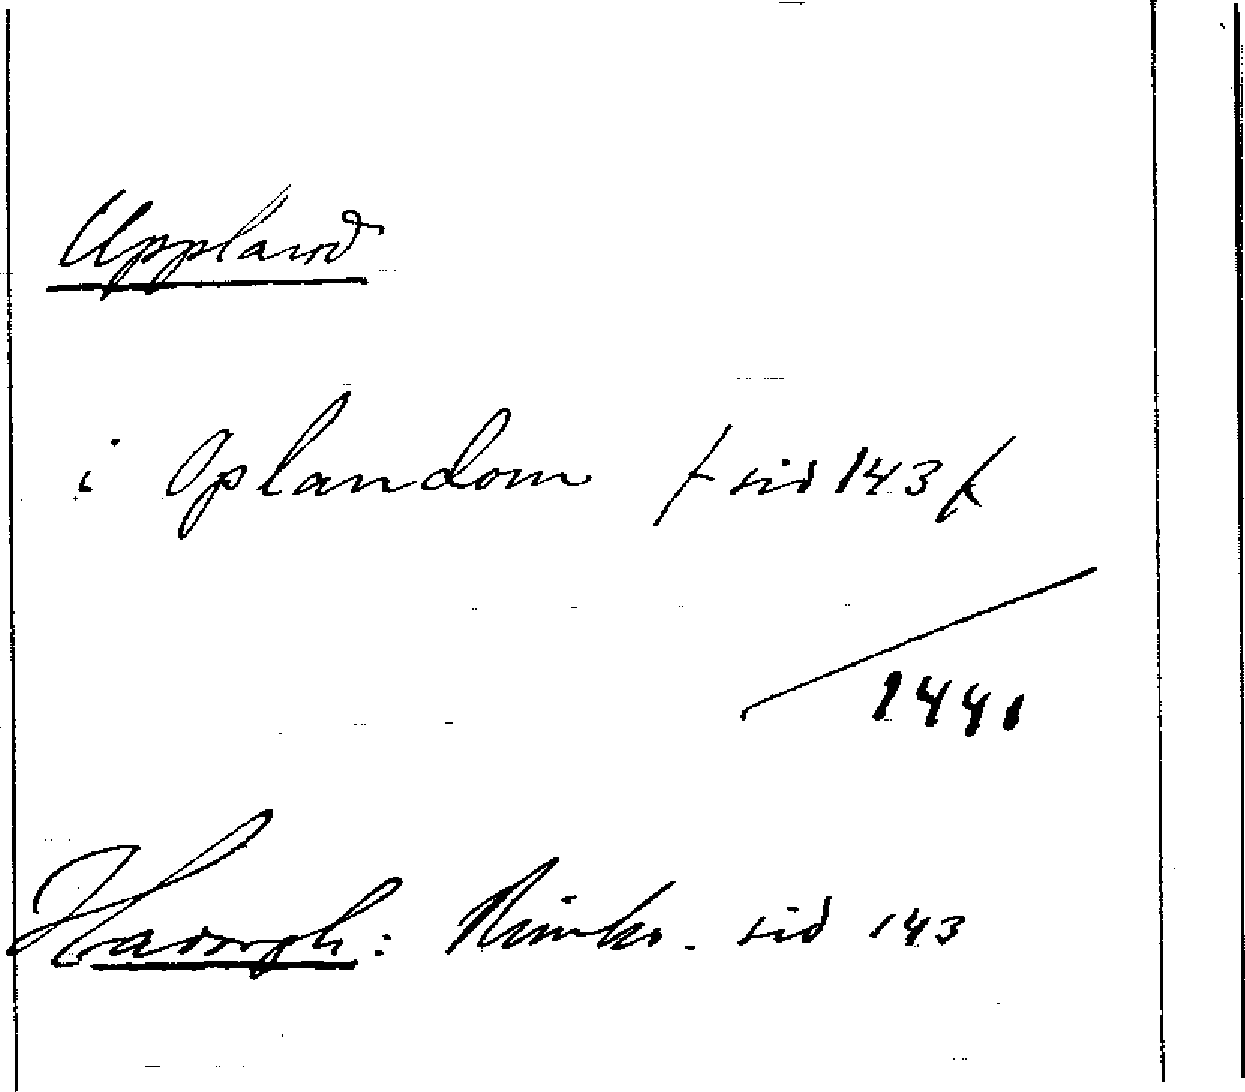 Uppland
i Oplandom /: sid 143 :/
1441
Hadorph: Rimkr. sid 143